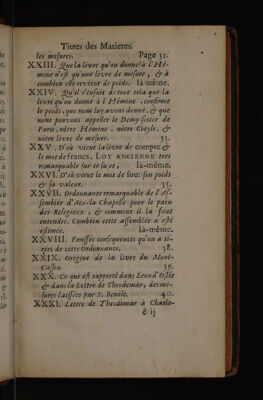 Titres des Matieres.
les mesures. Page 31.
XXIII. Que la livre qu'on donne à l'Hé-
mine n'est qu'une livre de mesure, & à
combien elle revient de poids. là-même.
XXIV. Qu'il s'ensuit de tout cela que la
livre qu'on donne à l'Hémine, confirme
le poids, que nous luy avons donné, & que
nous pouvons appeller le Demy-setier de
Paris, nôtre Hémine, nôtre Cotyle, &
nôtre livre de mesure. 33.
XXV. D'où vient la livre de compte &
le mot de francs, LOY ANCIENNE tres
remarquable sur ce sujet, là-même.
XXVI. D'où vient le mot de sou: son poids
& sa valeur. 35.
XXVII. Ordonnance remarquable de l'As-
semblée d'Aix-la Chapelle pour le pain
des Religieux, & comment il la faut
entendre. Combien cette assemblée a esté
estimée. là-même.
XXVIII. Fausses consequences qu'on a ti-
rées de cette Ordonnance. 38.
XXIX. Origine de la livre du Mont-
Cassin. 39.
XXX. Ce qui est rapporté dans Leon d'Ostie
& dans la Lettre de Theodemar, des me-
sures laissées par S. Benoît. 40.
XXXI. Lettre de Theodemar à Charle-
ẽ ij